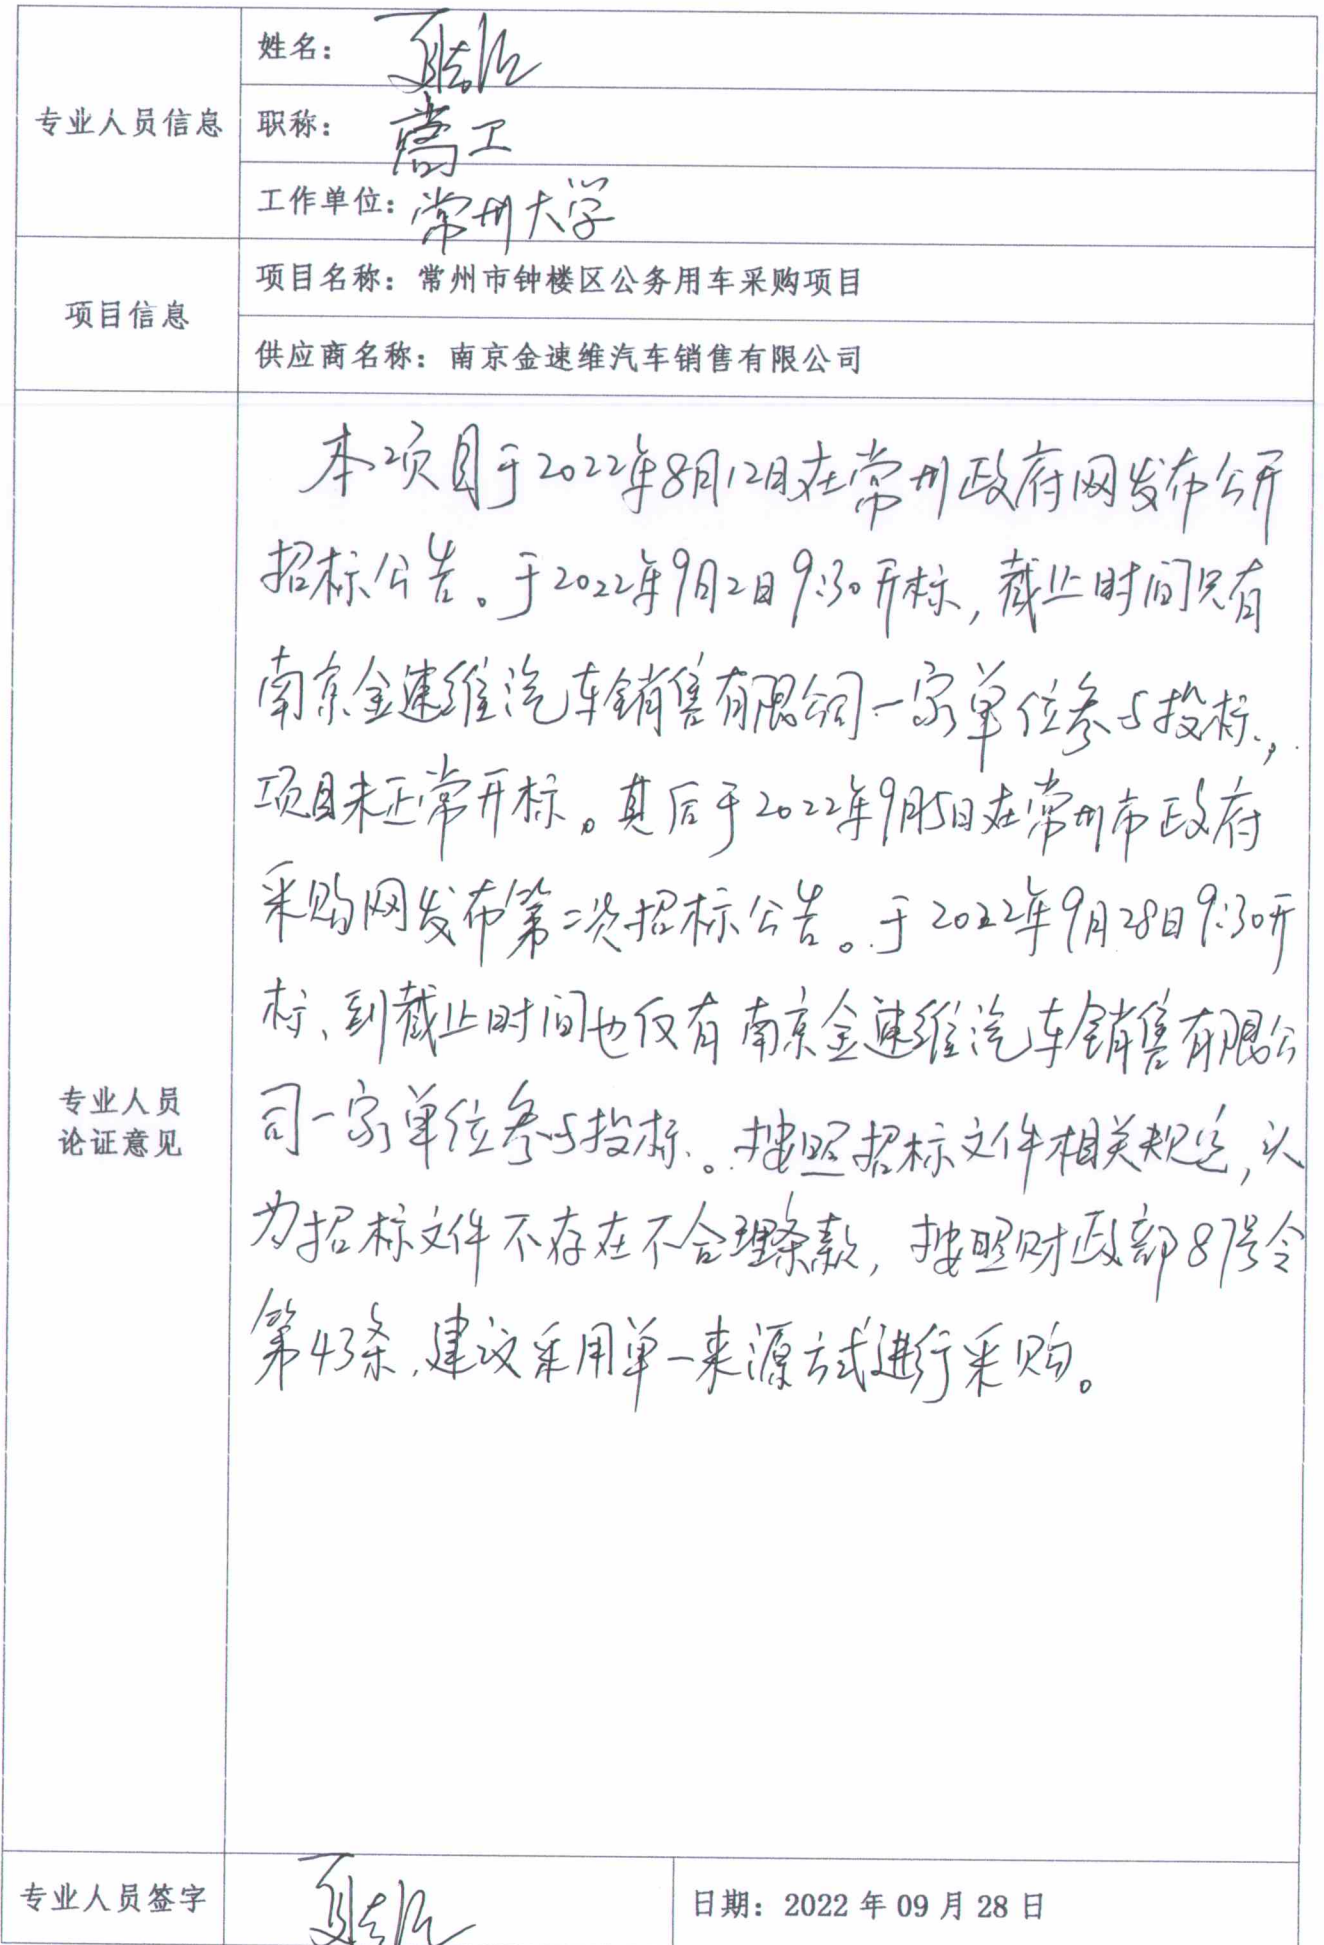 专业人员信息
姓名：
职称：高工
工作单位：常州大学
项目信息
项目名称：常州市钟楼区公务用车采购项目
供应商名称：南京金速维汽车销售有限公司
专业人员
论证意见
本项目于2022年8月12日在常州政府网发布公开
招标公告。于2022年9月2日9:30开标，截止时间只有
南京金速维汽车销售有限公司一家单位参与投标，
项目未正常开标。其后于2022年9月5日在常州市政府
采购网发布第二次招标公告。于2022年9月28日9:30开
标、到截止时间也仅有南京金速维汽车销售有限公
司一家单位参与投标。按照招标文件相关规定，认
为招标文件不存在不合理条款，按照财政部87号令
第43条，建议采用单一来源方式进行采购。
专业人员签字
日期：2022年09月28日